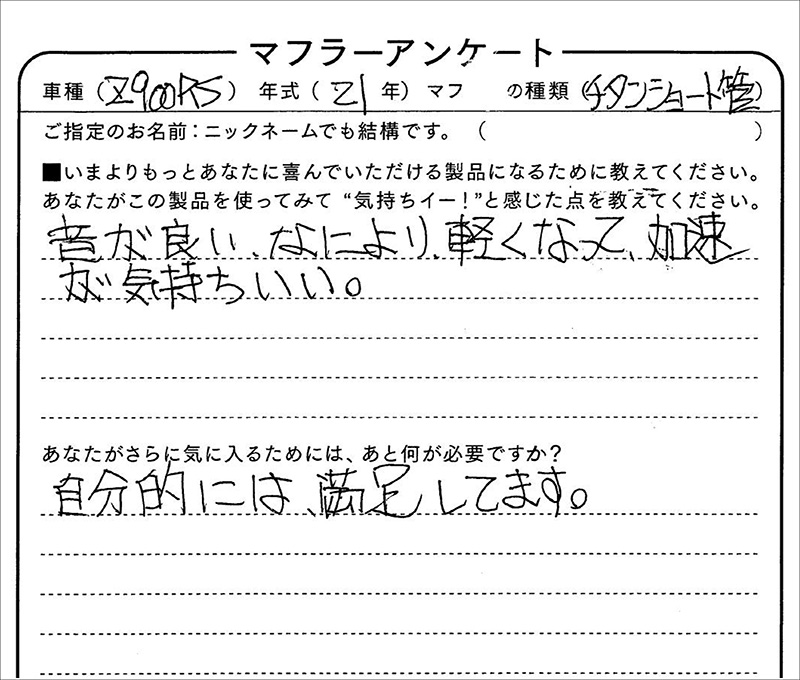 マフラーアンケート
車種（Z900RS）年式（21年）マフ の種類（チタンショート管）
ご指定のお名前：ニックネームでも結構です。（　）
■いまよりもっとあなたに喜んでいただける製品になるために教えてください。
あなたがこの製品を使ってみて“気持ちイー！”と感じた点を教えてください。
音が良い、なにより、軽くなって、加速
が気持ちいい。
あなたがさらに気に入るためには、あと何が必要ですか？
自分的には、満足してます。